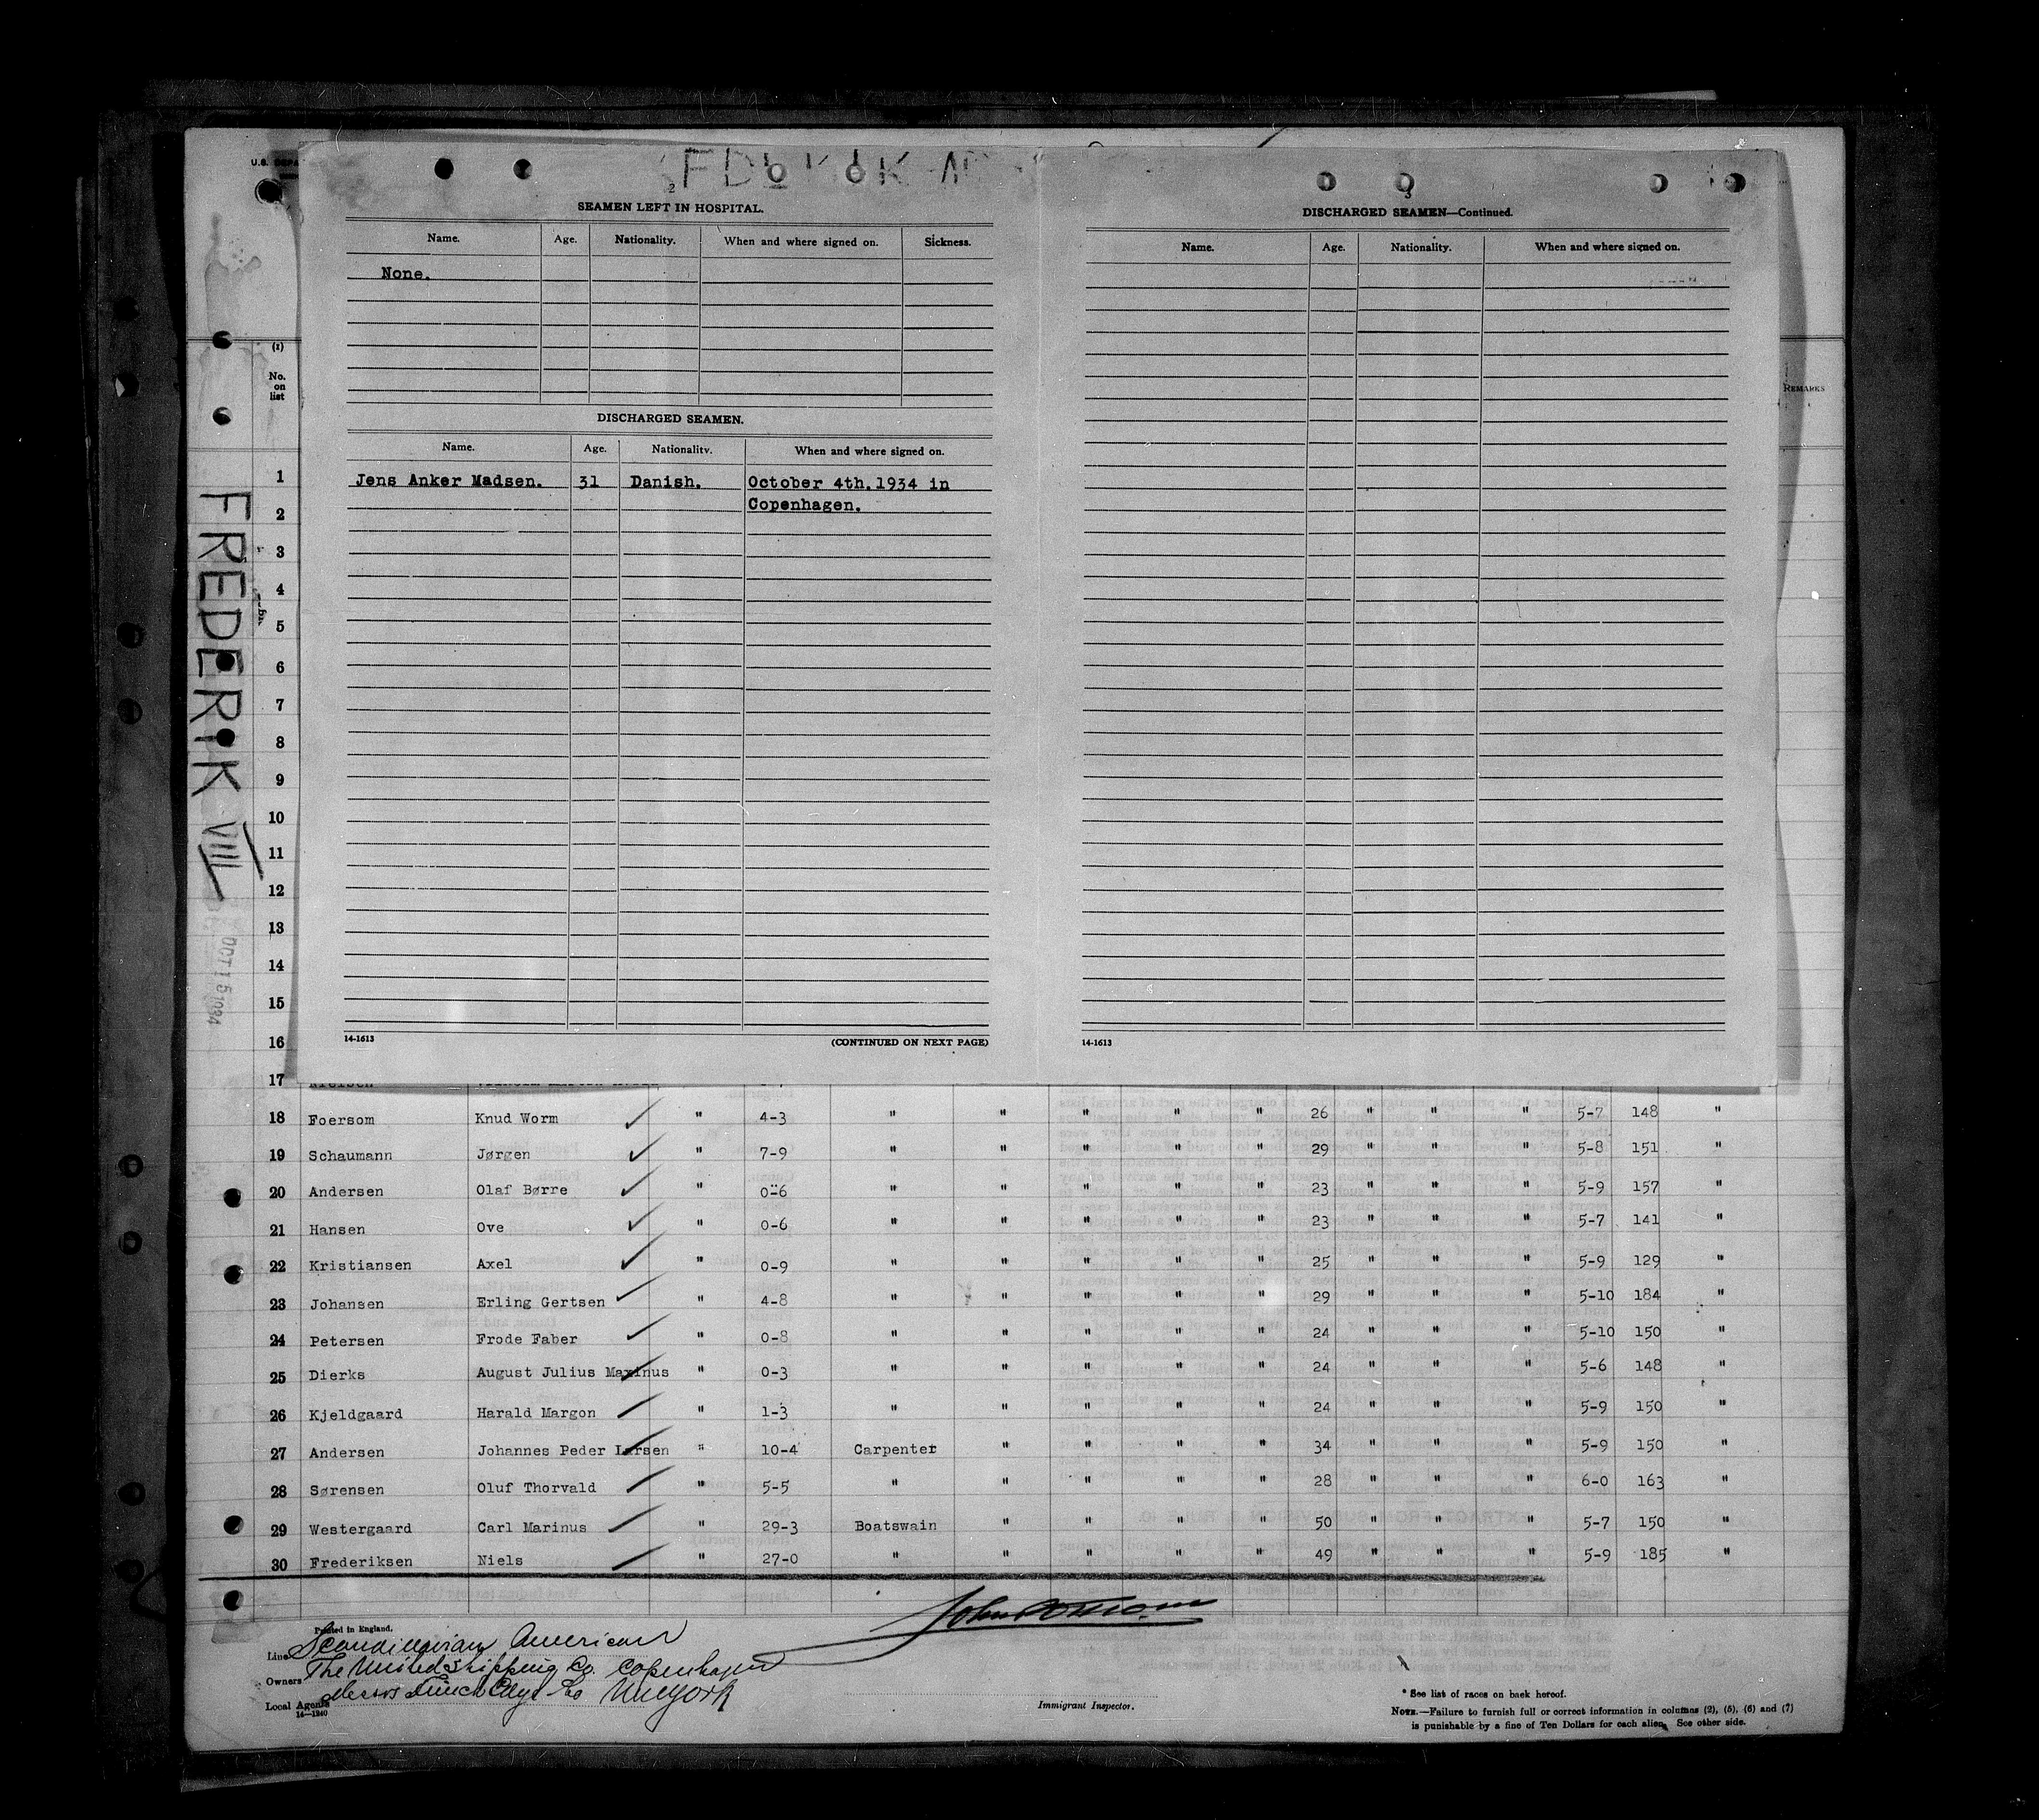 U.S. DEPA
2
SEAMEN LEFT IN HOSPITAL.
Name. Age. Nationality. When and where signed on. Sickness.
None.
DISCHARGED SEAMEN.
Name. Age. Nationality. When and where signed on.
Jens Anker Madsen. 31 Danish. October 4th. 1934 in
Copenhagen.
14-1613 (CONTINUED ON NEXT PAGE)
3
DISCHARGED SEAMEN—Continued.
Name. Age. Nationality. When and where signed on.
14-1613
REMARKS
(1)
No.
on
list
FREDERIK VIII
OCT 15 1934
1
2
3
4
5
6
7
8
9
10
11
12
13
14
15
16
17 Nielsen
18 Foersom Knud Worm " 4-3 " " " " " 26 " " " 5-7 148 "
19 Schaumann Jørgen " 7-9 " " " " " 29 " " " 5-8 151 "
20 Andersen Olaf Børre " 0-6 " " " " " 23 " " " 5-9 157 "
21 Hansen Ove " 0-6 " " " " " 23 " " " 5-7 141 "
22 Kristiansen Axel " 0-9 " " " " " 25 " " " 5-9 129 "
23 Johansen Erling Gertsen " 4-8 " " " " " 29 " " " 5-10 184 "
24 Petersen Frode Faber " 0-8 " " " " " 24 " " " 5-10 150 "
25 Dierks August Julius Maxinus " 0-3 " " " " " 24 " " " 5-6 148 "
26 Kjeldgaard Harald Margon " 1-3 " " " " " 24 " " " 5-9 150 "
27 Andersen Johannes Peder Larsen " 10-4 Carpenter " " " " 34 " " " 5-9 150 "
28 Sørensen Oluf Thorvald " 5-5 " " " " " 28 " " " 6-0 163 "
29 Westergaard Carl Marinus " 29-3 Boatswain " " " " 50 " " " 5-7 150 "
30 Frederiksen Niels " 27-0 " " " " " 49 " " " 5-9 185 "
Printed in England.
Line Scandinavian American
Owners The United Shipping Co. Copenhagen
Local Agents Messrs Funch Edye Co New York
14—1240
Immigrant Inspector.
* See list of races on back hereof.
NOTE.—Failure to furnish full or correct information in columns (2), (5), (6) and (7)
is punishable by a fine of Ten Dollars for each alien. See other side.